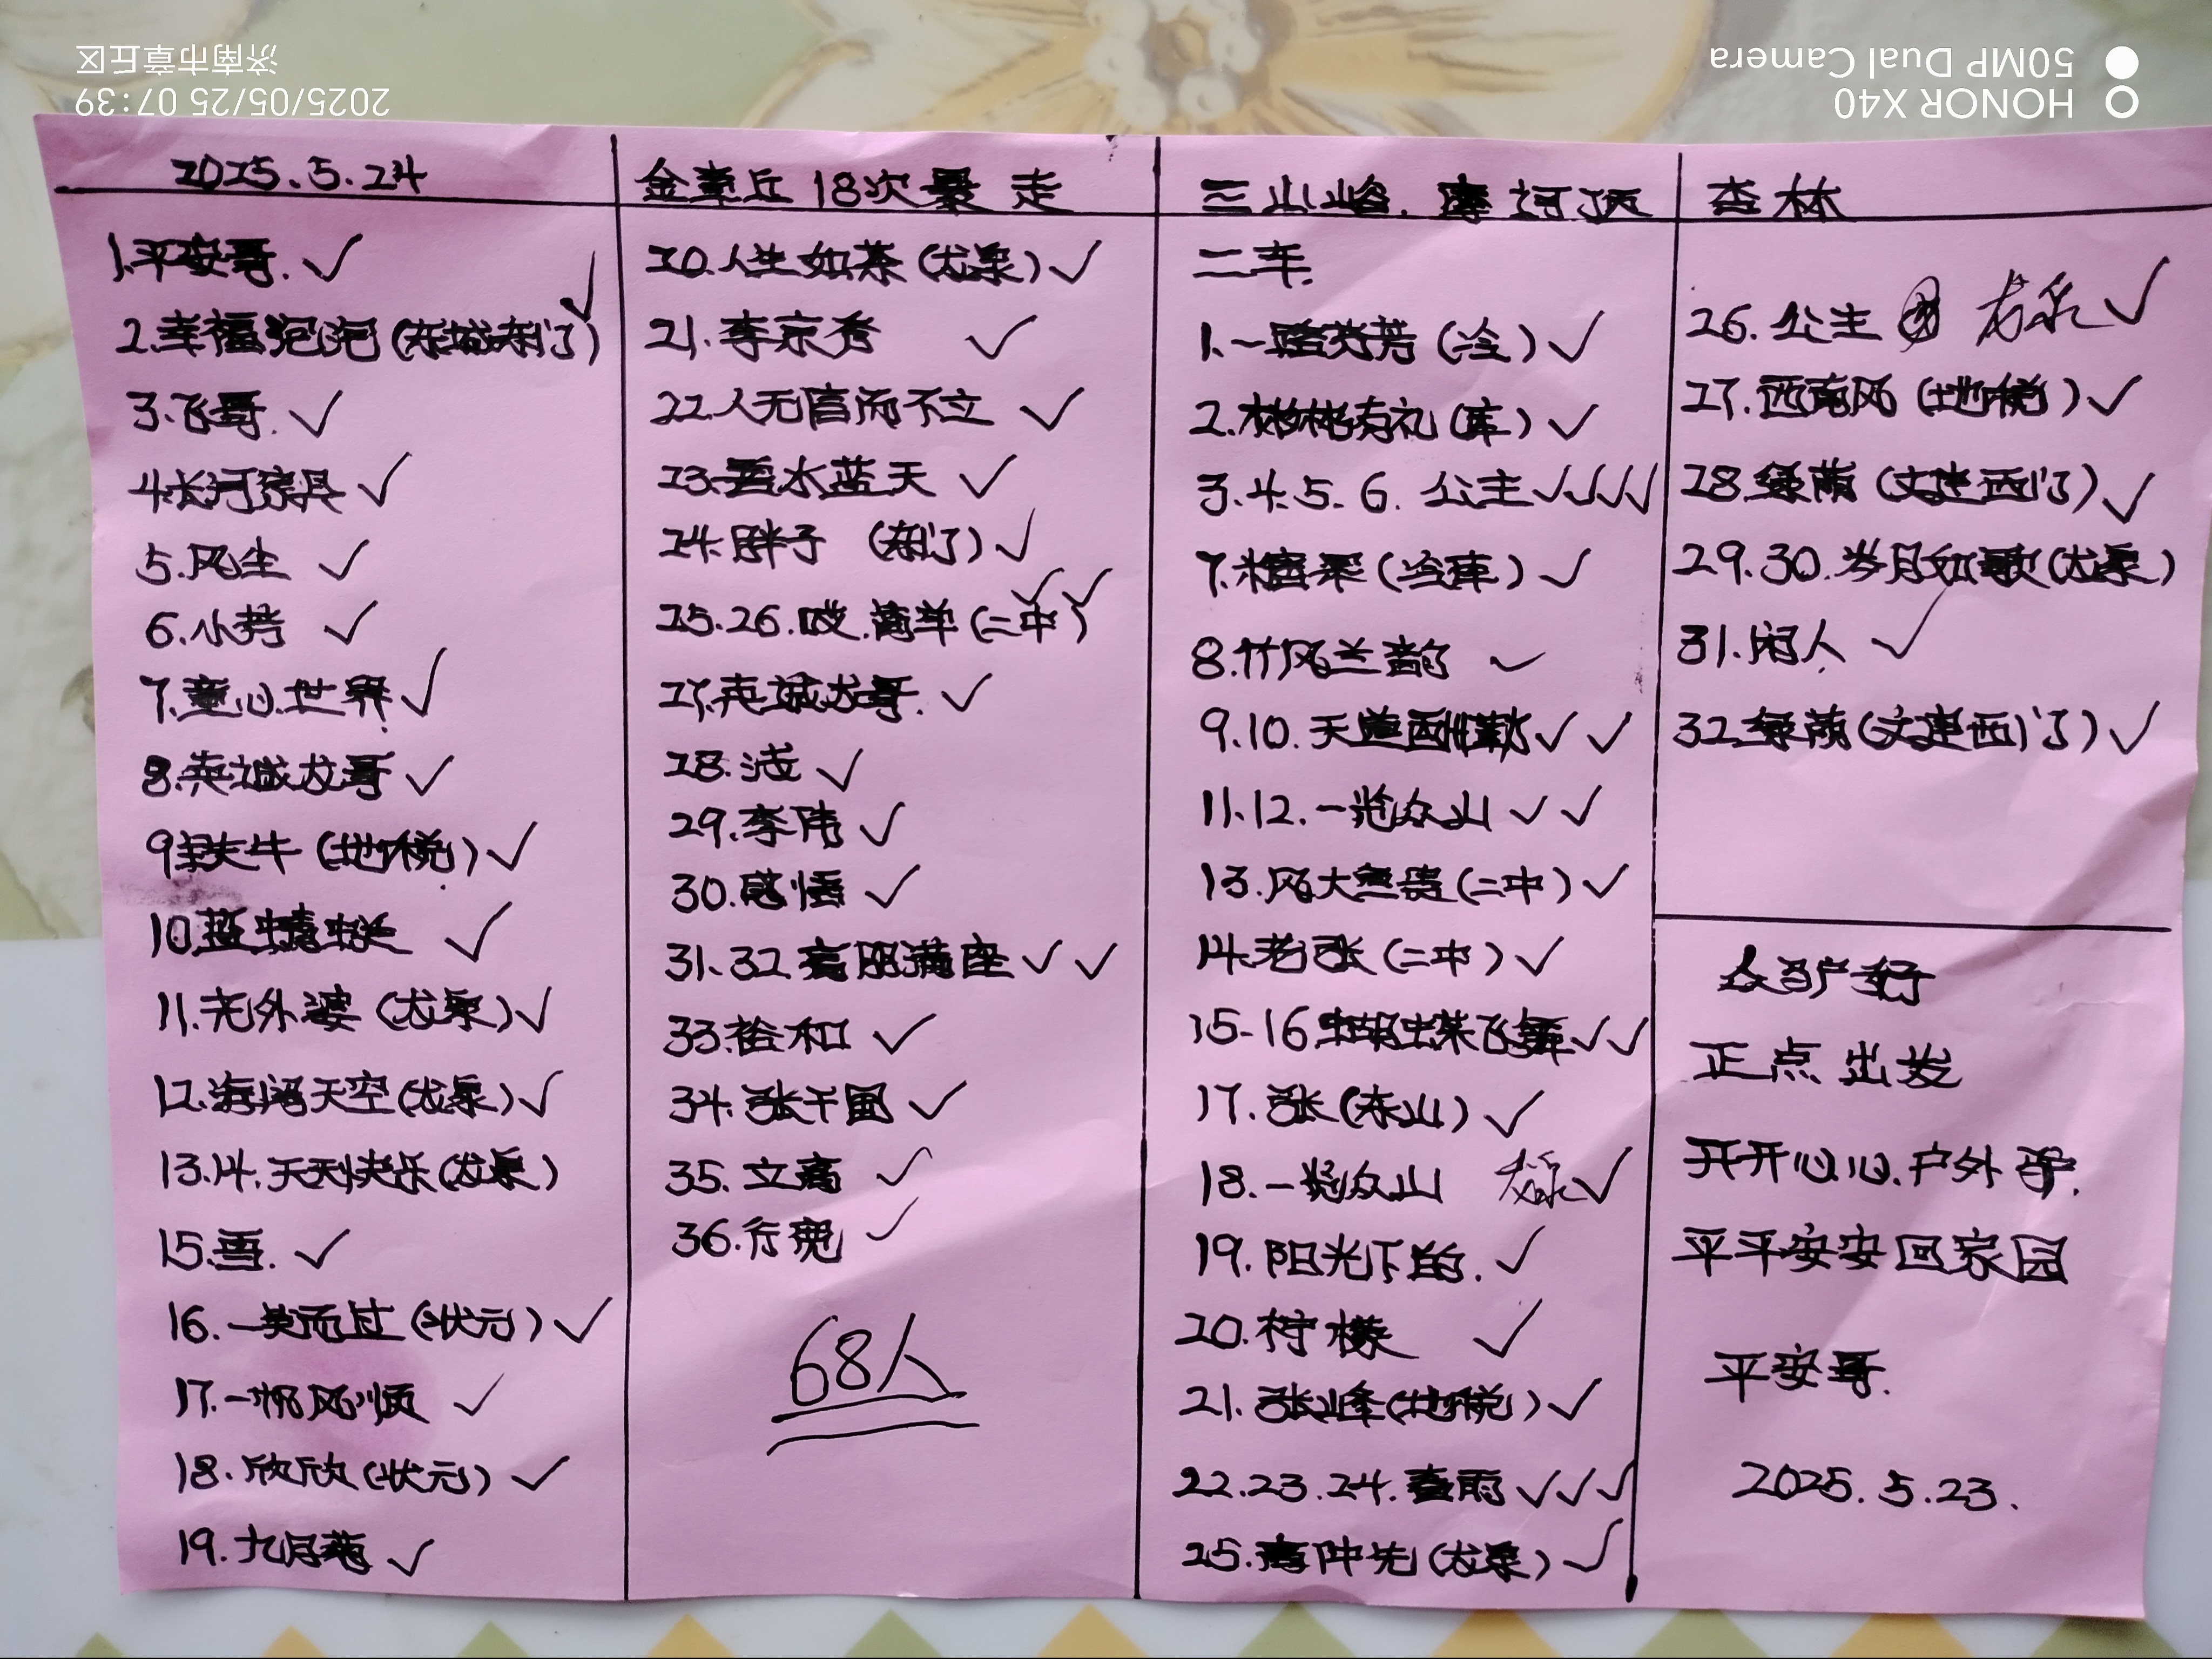 2025.5.24
金章丘18次暴走
三山峪.摩诃顶
杏林
1.平安哥.✓
2.幸福泡泡(东城东门)✓
3.飞哥.✓
4.长河✓
5.风尘✓
6.小芳✓
7.童心世界✓
8.英诚龙哥✓
9.铁牛(地税)✓
10.蓝蜻蜓✓
11.老外婆(龙泉)✓
12.海阔天空(龙泉)✓
13.14.天天快乐(龙泉)
15.雪.✓
16.一笑而过(状元)✓
17.一帆风顺✓
18.欣欣(状元)✓
19.九月菊✓
20.人生如茶(龙泉)✓
21.李京秀✓
22.人无信而不立✓
23.碧水蓝天✓
24.胖子(东门)✓
25.26.(二中)✓✓
27.英诚龙哥.✓
28.浅✓
29.李伟✓
30.感悟✓
31.32.高朋满座✓✓
33.裕和✓
34.张干国✓
35.立高✓
36.行宽✓
68人
二车.
1.一路芬芳(冷)✓
2.彬彬有礼(库)✓
3.4.5.6.公主✓✓✓✓
7.糖果(冷库)✓
8.竹风兰韵✓
9.10.天道酬勤✓✓
11.12.一览众山✓✓
13.风大(二中)✓
14.老张(二中)✓
15-16.蝴蝶飞舞✓✓
17.张(东山)✓
18.一览众山 龙泉✓
19.阳光下的.✓
20.柠檬✓
21.张峰(地税)✓
22.23.24.春雨✓✓✓
25.高仲先(龙泉)✓
26.公主 龙泉✓
27.西南风(地税)✓
28.绿荫(文建西门)✓
29.30.岁月如歌(龙泉)
31.闲人✓
32.绿荫(文建西门)✓
众驴好
正点出发
开开心心.户外
平平安安回家园
平安哥.
2025.5.23.
HONOR X40
50MP Dual Camera
2025/05/25 07:39
济南市章丘区